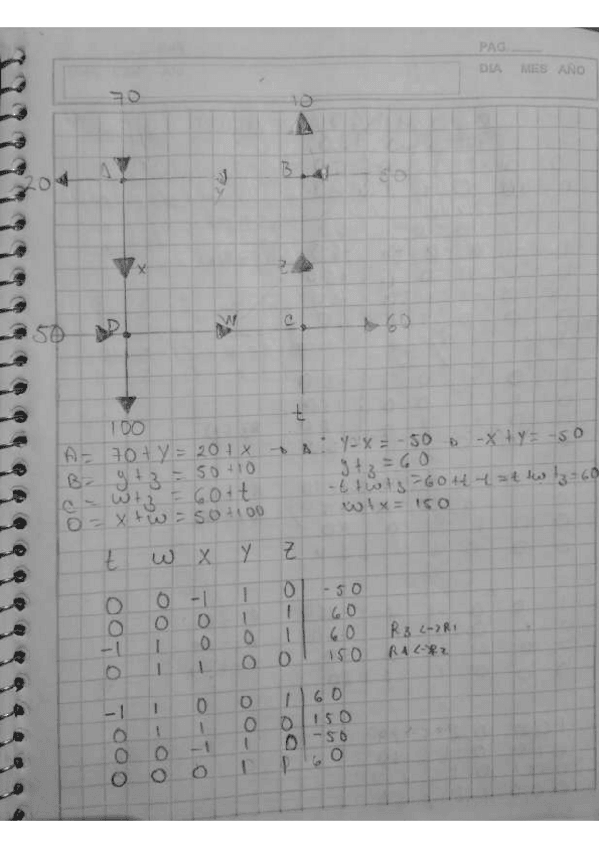 PAG.
DIA MES AÑO
70 10
20 A y B
x z
50 D W C 60
100 t
A= 70+Y=20+X → A: Y-X=-50 o -X+Y=-50
B= y+z=50+10 y+z=60
C= w+z=60+t -t+w+z=60+t-t=
D= X+w=50+100 w+x=150
t w x y z
0 0 -1 1 0 | -50
0 0 0 1 1 | 60
-1 1 0 0 1 | 60 R3<->R1
0 1 1 0 0 | 150 R4<->R2
-1 1 0 0 1 | 60
0 1 1 0 0 | 150
0 0 -1 1 0 | -50
0 0 0 1 1 | 60